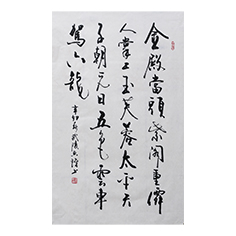 金殿當頭紫閣重僊
人掌上玉芙蓉太平天
子朝元日五色雲車
駕六龍 辛卯